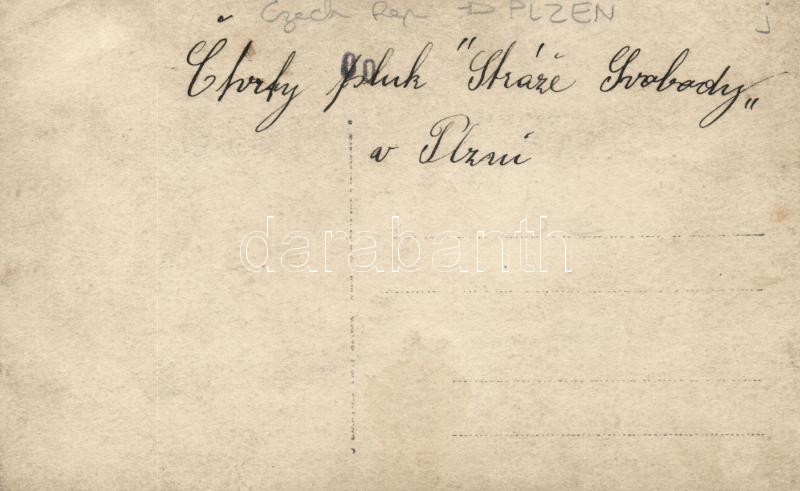 Czech Rep → PLZEN j
Čtvrty pluk "Stráže Svobody„
v Plzni
darabanth